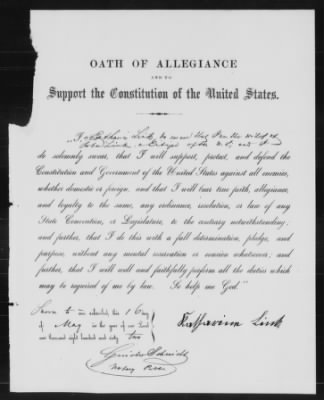 OATH OF ALLEGIANCE
AND TO
Support the Constitution of the United States.
"I, Katharine Link, do swear that I am the wife of
John Link a Citizen of the U.S. and I
do solemnly swear, that I will support, protect, and defend the
Constitution and Government of the United States against all enemies,
whether domestic or foreign, and that I will bear true faith, allegiance,
and loyalty to the same, any ordinance, resolution, or law of any
State Convention, or Legislature, to the contrary notwithstanding;
and further, that I do this with a full determination, pledge, and
purpose, without any mental reservation or evasion whatsoever; and
further, that I will well and faithfully perform all the duties which
may be required of me by law. So help me God."
Sworn to and subscribed, this 16 day
of May in the year of our Lord
one thousand eight hundred and sixty two
Katharine Link
Schmidt
Notary